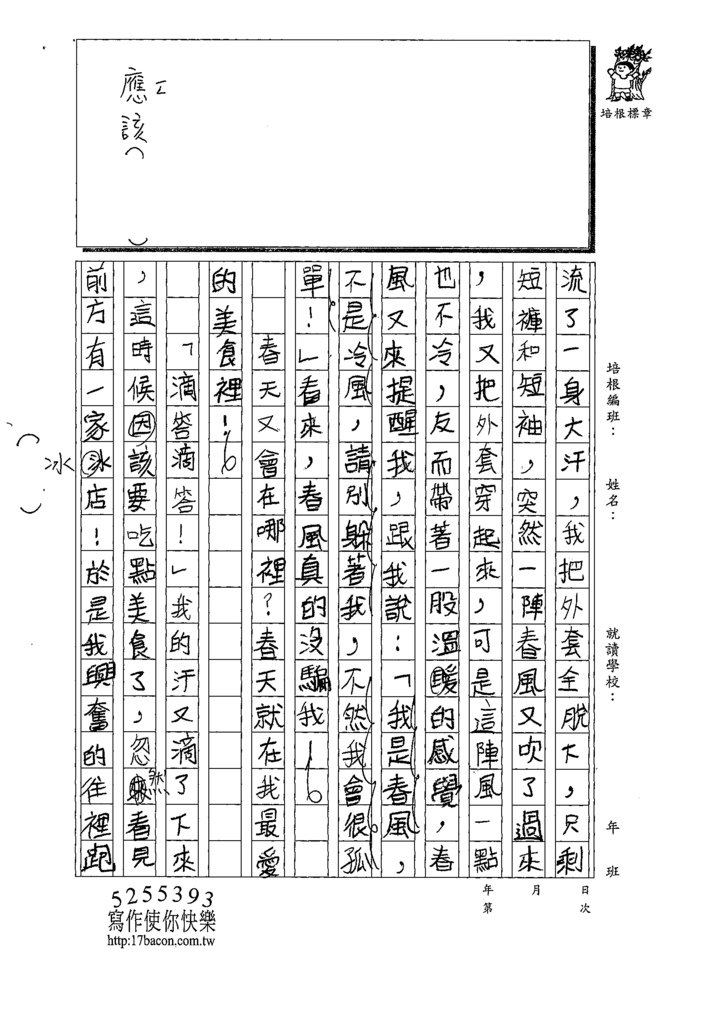 流了一身大汗，我把外套全脫大，只剩
短褲和短袖，突然一陣春風又吹了過來
，我又把外套穿起來，可是這陣風一點
也不冷，友而帶著一股溫暖的感覺，春
風又來提醒我，跟我說：「我是春風，
不是冷風，請別躲著我，不然我會很孤
單！」看來，春風真的沒騙我！
春天又會在哪裡？春天就在我最愛
的美食裡！
「滴答滴答！」我的汗又滴了下來
，這時候因該要吃點美食了，忽然看見
前方有一家冰店！於是我興奮的往裡跑
應該（ ）
ㄥ
冰（ ）
培根標章
培根編班：
姓名：
就讀學校：
年 班
年 月 日
第 次
5255393
寫作使你快樂
http:17bacon.com.tw